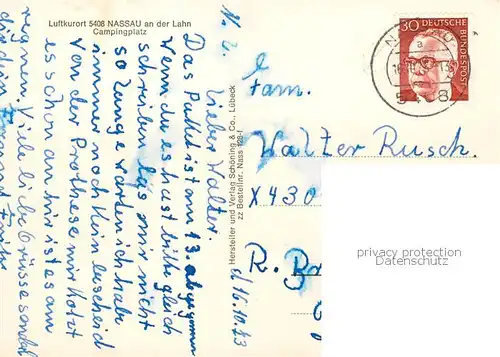 Luftkurort 5408 NASSAU an der Lahn
Campingplatz
N. d. 16.10.73
Lieber Walter.
Das Paket ist am 13. abgegangen
wenn du es hast bitte gleich
schreiben lass mir nicht
so lange warten ich habe
immer noch kein bescheid
von der Prothese mir kotzt
es schon an hir ist es am
regnen. Viele liebe Grüsse sendet
Hersteller und Verlag Schöning & Co., Lübeck
zz Bestellnr. Nass 128-f
30 DEUTSCHE BUNDESPOST
Fam.
Walter Rusch.
X430
R.
privacy protection
Datenschutz